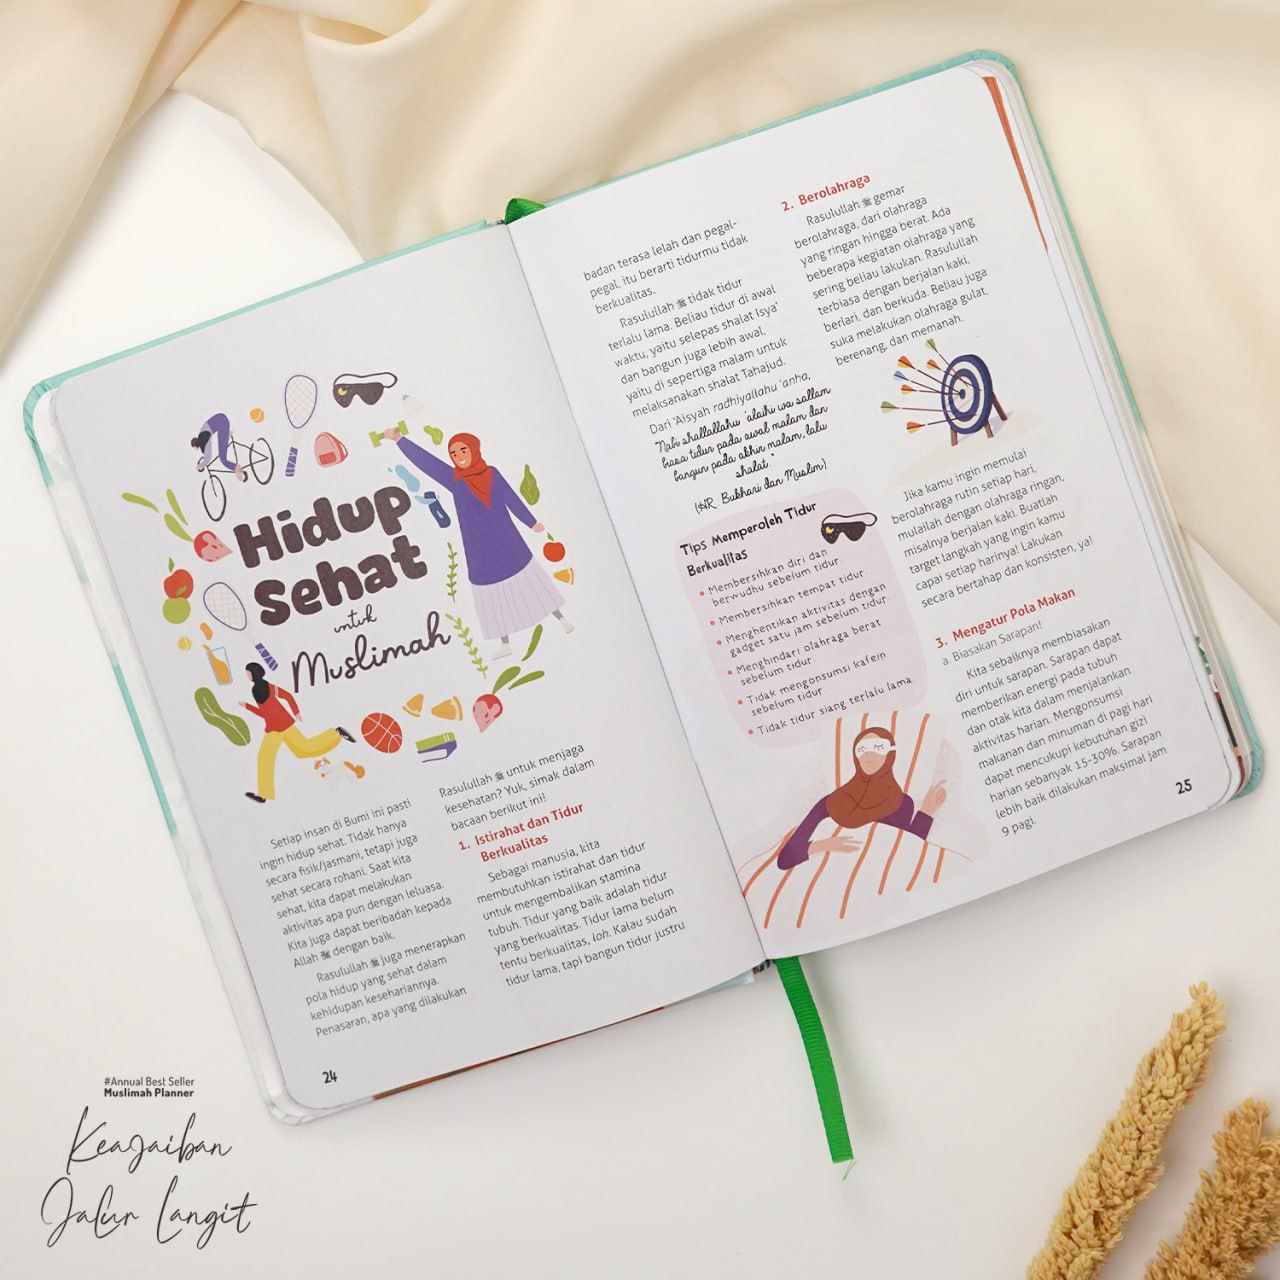 Hidup
Sehat
untuk
Muslimah
Setiap insan di Bumi ini pasti
ingin hidup sehat. Tidak hanya
secara fisik/jasmani, tetapi juga
sehat secara rohani. Saat kita
sehat, kita dapat melakukan
aktivitas apa pun dengan leluasa.
Kita juga dapat beribadah kepada
Allah ﷻ dengan baik.
Rasulullah ﷺ juga menerapkan
pola hidup yang sehat dalam
kehidupan kesehariannya.
Penasaran, apa yang dilakukan
Rasulullah ﷺ untuk menjaga
kesehatan? Yuk, simak dalam
bacaan berikut ini!
1. Istirahat dan Tidur
Berkualitas
Sebagai manusia, kita
membutuhkan istirahat dan tidur
untuk mengembalikan stamina
tubuh. Tidur yang baik adalah tidur
yang berkualitas. Tidur lama belum
tentu berkualitas, loh. Kalau sudah
tidur lama, tapi bangun tidur justru
24
badan terasa lelah dan pegal-
pegal, itu berarti tidurmu tidak
berkualitas.
Rasulullah ﷺ tidak tidur
terlalu lama. Beliau tidur di awal
waktu, yaitu selepas shalat Isya'
dan bangun juga lebih awal,
yaitu di sepertiga malam untuk
melaksanakan shalat Tahajud.
Dari 'Aisyah radhiyallahu 'anha,
"Nabi shallallahu 'alaihi wa sallam
biasa tidur pada awal malam dan
bangun pada akhir malam, lalu
shalat."
(HR. Bukhari dan Muslim)
Tips Memperoleh Tidur
Berkualitas
• Membersihkan diri dan
berwudhu sebelum tidur
• Membersihkan tempat tidur
• Menghentikan aktivitas dengan
gadget satu jam sebelum tidur
• Menghindari olahraga berat
sebelum tidur
• Tidak mengonsumsi kafein
sebelum tidur
• Tidak tidur siang terlalu lama
2. Berolahraga
Rasulullah ﷺ gemar
berolahraga, dari olahraga
yang ringan hingga berat. Ada
beberapa kegiatan olahraga yang
sering beliau lakukan. Rasulullah
terbiasa dengan berjalan kaki,
berlari, dan berkuda. Beliau juga
suka melakukan olahraga gulat,
berenang, dan memanah.
Jika kamu ingin memulai
berolahraga rutin setiap hari,
mulailah dengan olahraga ringan,
misalnya berjalan kaki. Buatlah
target langkah yang ingin kamu
capai setiap harinya! Lakukan
secara bertahap dan konsisten, ya!
3. Mengatur Pola Makan
a. Biasakan Sarapan!
Kita sebaiknya membiasakan
diri untuk sarapan. Sarapan dapat
memberikan energi pada tubuh
dan otak kita dalam menjalankan
aktivitas harian. Mengonsumsi
makanan dan minuman di pagi hari
dapat mencukupi kebutuhan gizi
harian sebanyak 15-30%. Sarapan
lebih baik dilakukan maksimal jam
9 pagi.
25
#Annual Best Seller
Muslimah Planner
Keajaiban
Jalur Langit